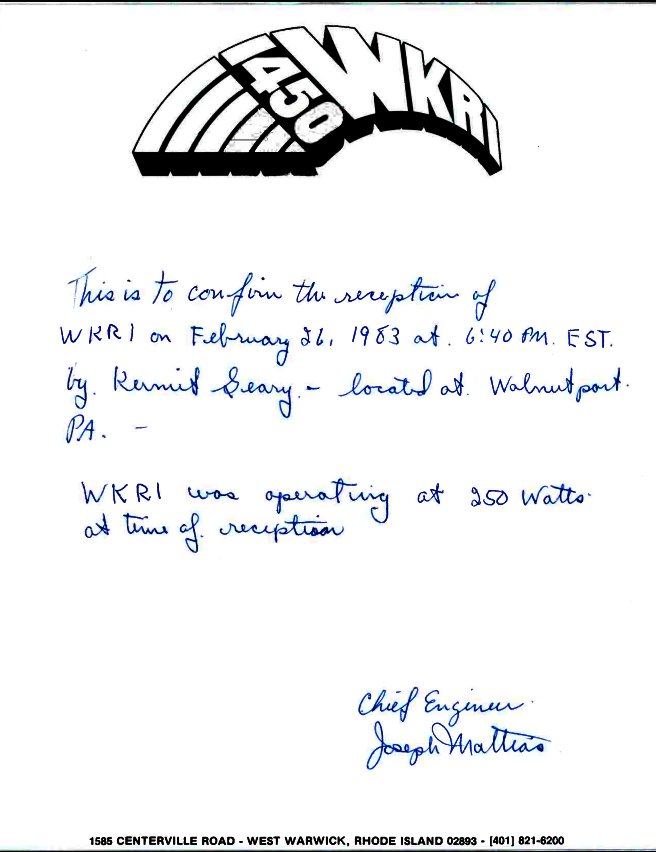 1450 WKRI
This is to confirm the reception of
WKRI on February 26, 1983 at. 6:40 PM. EST.
by. Kermit Geary. - located at. Walnutport.
PA. -
WKRI was operating at 250 Watts.
at time of. reception
Chief Engineer.
Joseph Mattias
1585 CENTERVILLE ROAD - WEST WARWICK, RHODE ISLAND 02893 - [401] 821-6200